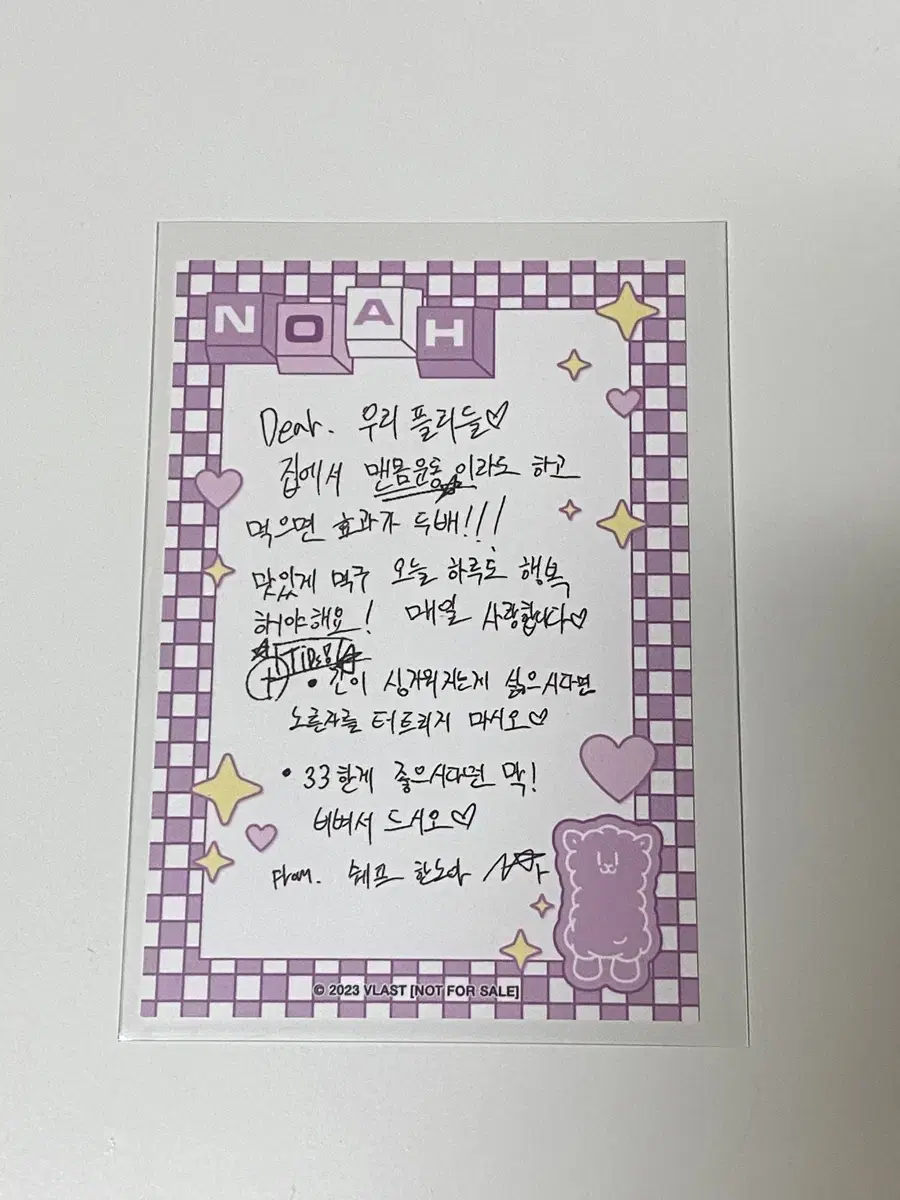 NOAH
Dear. 우리 플리들♡
집에서 맨몸운동이라도 하고
먹으면 효과가 두배!!!
맛있게 먹구 오늘 하루도 행복
해야해요! 매일 사랑합니다♡
+ TIP
• 간이 싱거워지는게 싫으시다면
노른자를 터트리지 마시오♡
• 33한게 좋으시다면 막!
비벼서 드시오♡
From. 쉐프 한노아
© 2023 VLAST [NOT FOR SALE]